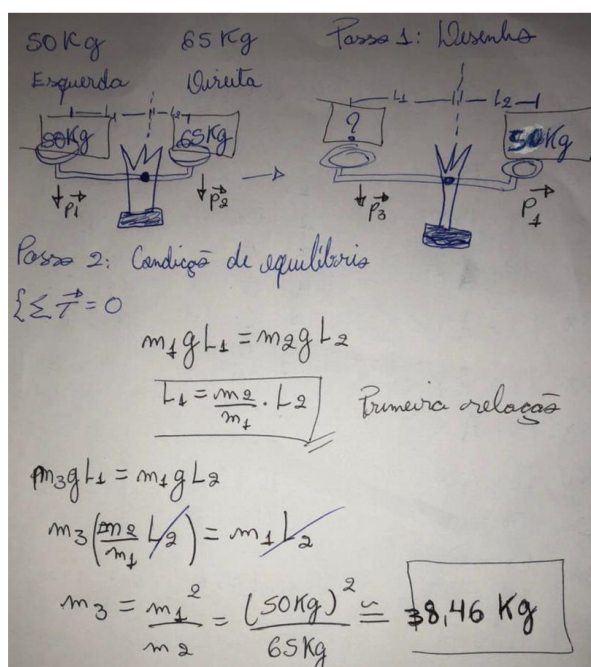 50Kg 65Kg Passo 1: Desenho
Esquerda Direita
L1 L2 L1 L2
50Kg 65Kg ? 50Kg
P1 P2 P3 P1
Passo 2: Condição de equilíbrio
{Σ τ = 0
m1 g L1 = m2 g L2
L1 = m2/m1 . L2 Primeira relação
m3 g L1 = m1 g L2
m3 (m2/m1 L2) = m1 L2
m3 = m1²/m2 = (50Kg)²/65Kg ≃ 38,46 Kg